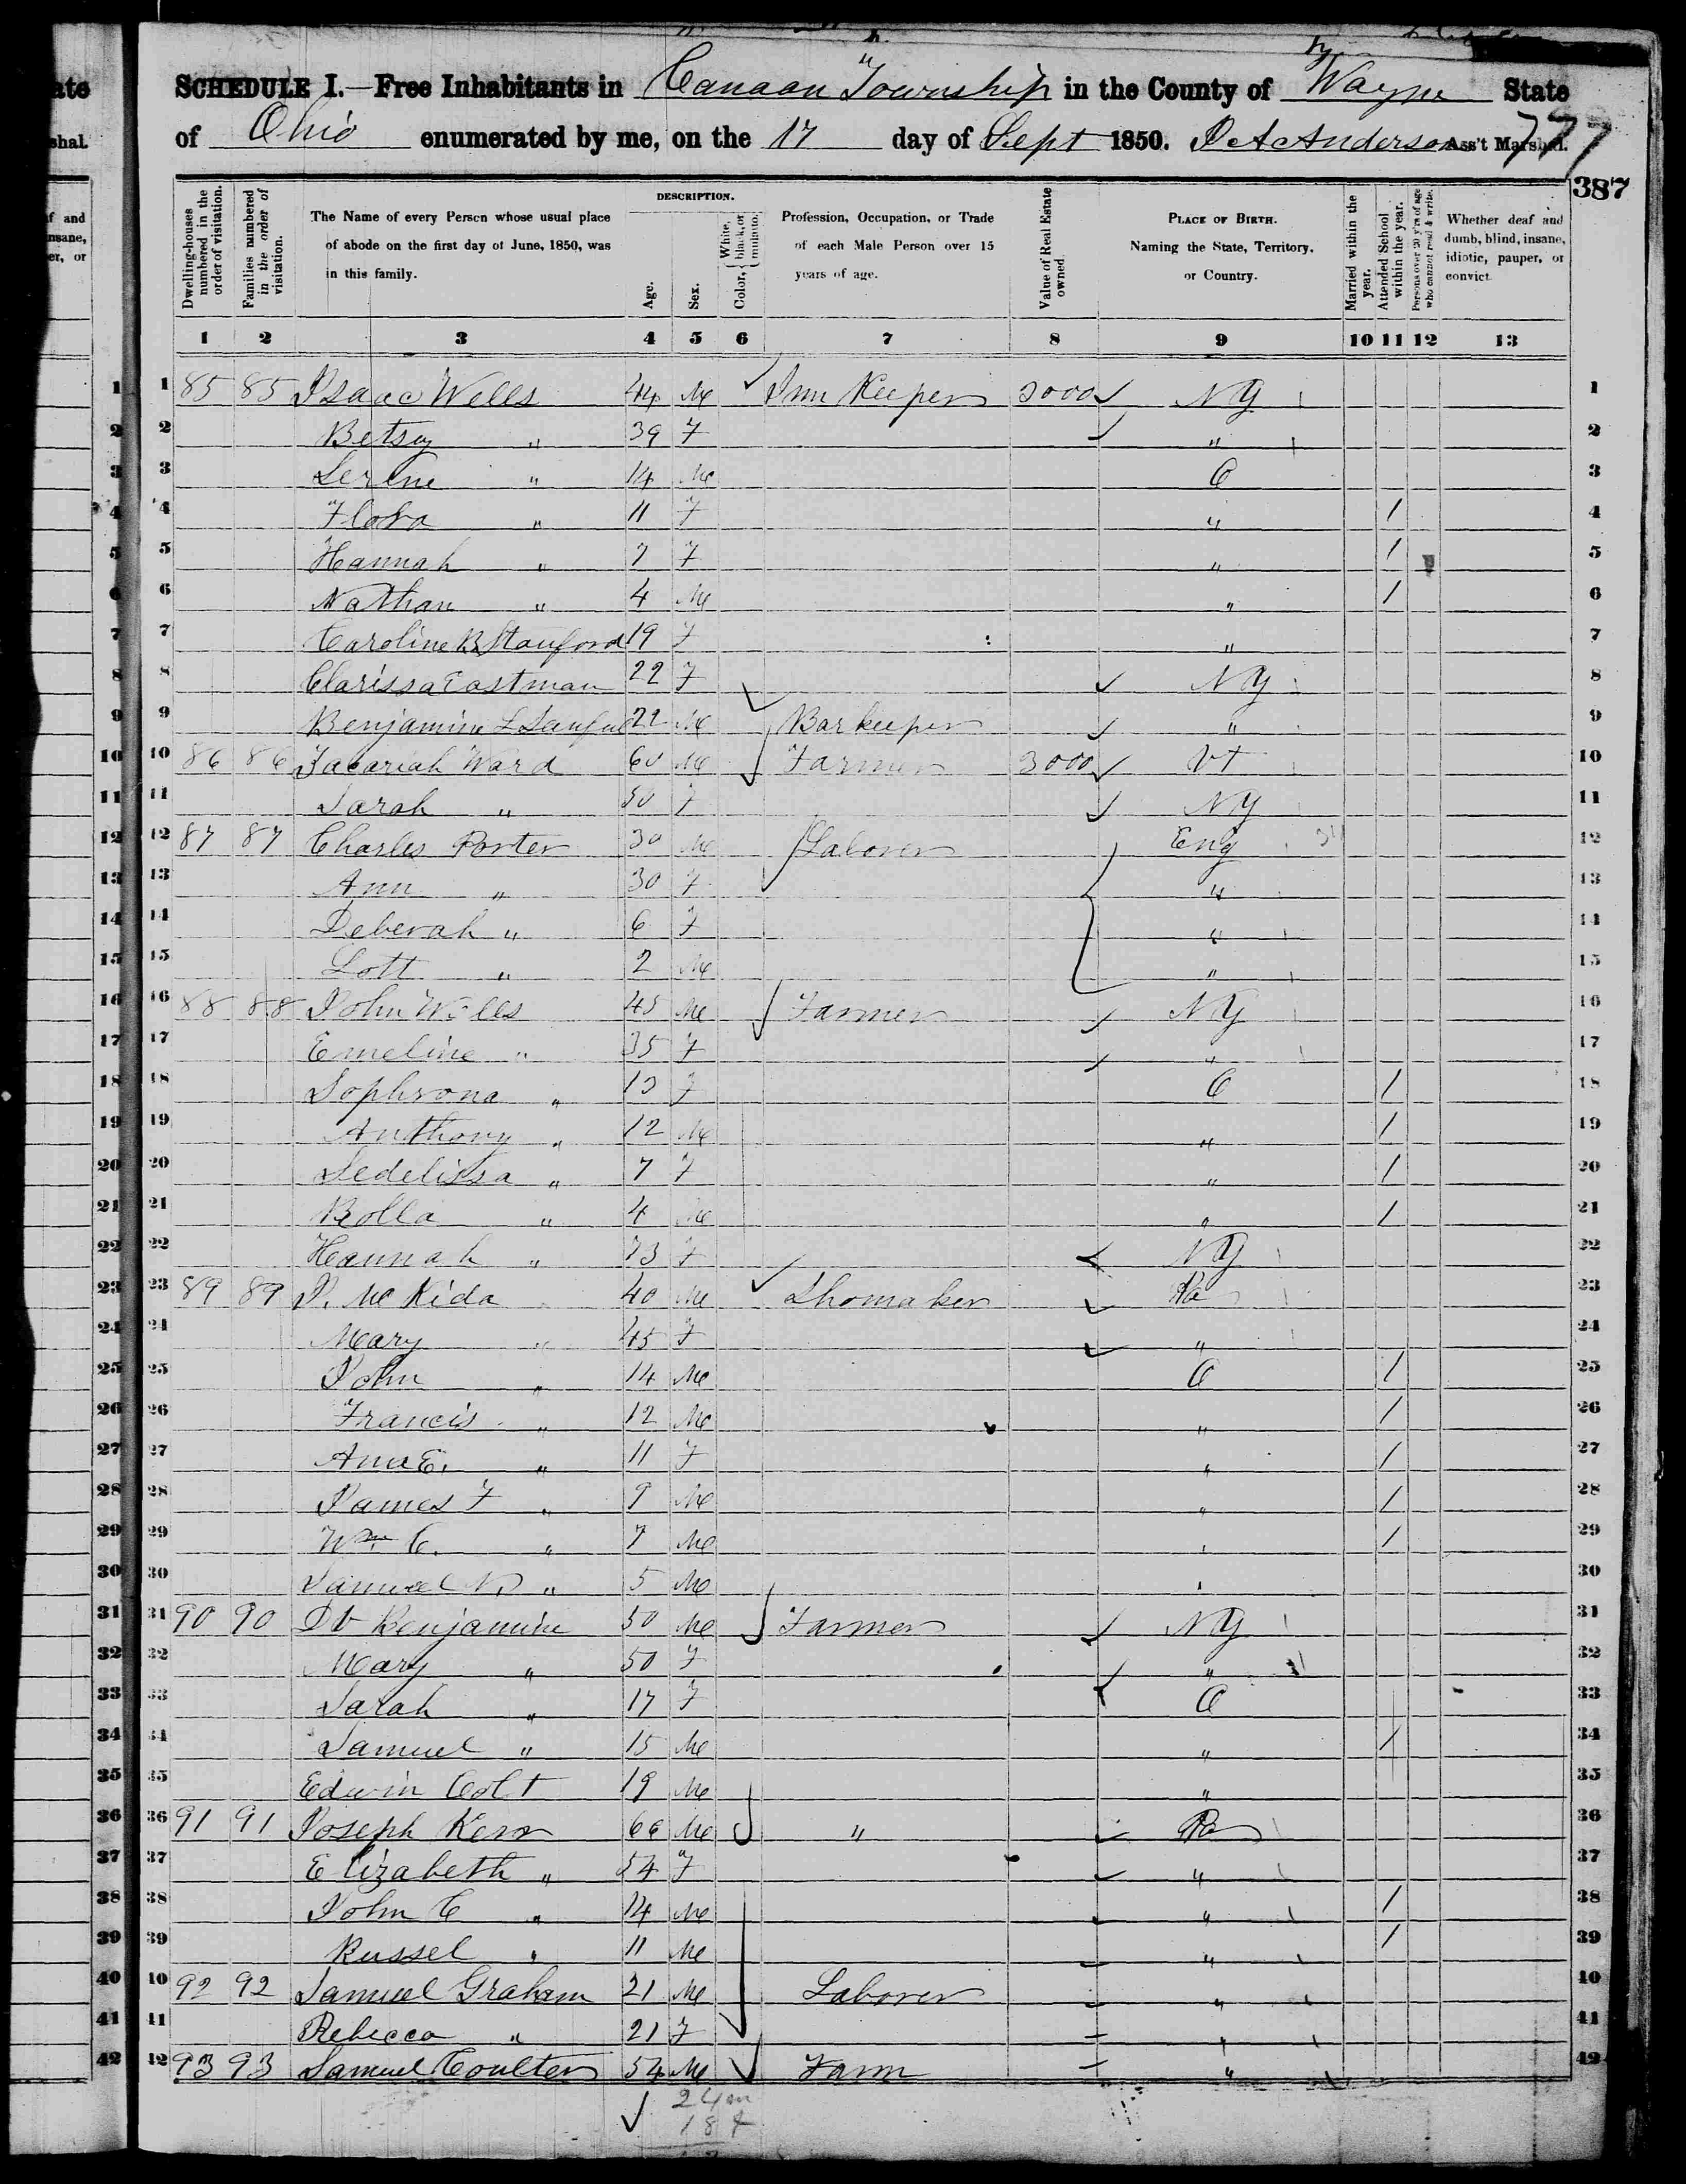 SCHEDULE I.—Free Inhabitants in Canaan Township in the County of Wayne State
of Ohio enumerated by me, on the 17 day of Sept 1850. Anderson Ass't Marshal. 777
387
Dwelling-houses numbered in the order of visitation.
Families numbered in the order of visitation.
The Name of every Person whose usual place of abode on the first day of June, 1850, was in this family.
DESCRIPTION.
Age.
Sex.
Color, { White, black, or mulatto.
Profession, Occupation, or Trade of each Male Person over 15 years of age.
Value of Real Estate owned.
PLACE OF BIRTH. Naming the State, Territory, or Country.
Married within the year.
Attended School within the year.
Persons over 20 y'rs of age who cannot read & write.
Whether deaf and dumb, blind, insane, idiotic, pauper, or convict.
1 2 3 4 5 6 7 8 9 10 11 12 13
1 85 85 Isaac Wells 44 M Inn Keeper NY 1
2 Betsy " 39 F " 2
3 Serene " 14 M O 3
4 Flora " 11 F " / 4
5 Hannah " 7 F " / 5
6 Nathan " 4 M " / 6
7 Caroline B Stanford 19 F " 7
8 Clarissa Eastman 22 F NY 8
9 Benjamine L 22 M Barkeeper " 9
10 86 86 Zacariah Ward 60 M Farmer 3000 Vt 10
11 Sarah " 50 F NY 11
12 87 87 Charles Porter 30 M Laborer Eng 12
13 Ann " 30 F " 13
14 Deberah " 6 F " 14
15 Lott " 2 M " 15
16 88 88 John Wells 45 M Farmer NY 16
17 Emeline " 35 F " 17
18 Sophrona " 13 F O / 18
19 Anthony " 12 M " / 19
20 Sedelissa " 7 F " / 20
21 Rolla " 4 M " / 21
22 Hannah " 73 F NY 22
23 89 89 J. McKida 40 M Shomaker Pa 23
24 Mary " 45 F " 24
25 John " 14 M O / 25
26 Francis " 12 M " / 26
27 Ann E. " 11 F " / 27
28 James F " 9 M " / 28
29 Wm C. " 7 M " / 29
30 Samuel " 5 M " 30
31 90 90 Benjamine 50 M Farmer NY 31
32 Mary " 50 F " 32
33 Sarah " 17 F O 33
34 Samuel " 15 M " / 34
35 Edwin Colt 19 M " 35
36 91 91 Joseph Kerr 66 M " Pa 36
37 Elizabeth " 54 F " 37
38 John C " 14 M " / 38
39 Russel " 11 M " / 39
40 92 92 Samuel Graham 21 M Laborer " 40
41 Rebecca " 21 F " 41
42 93 93 Samuel Coulter 54 M Farm " 42
24 m
18 f